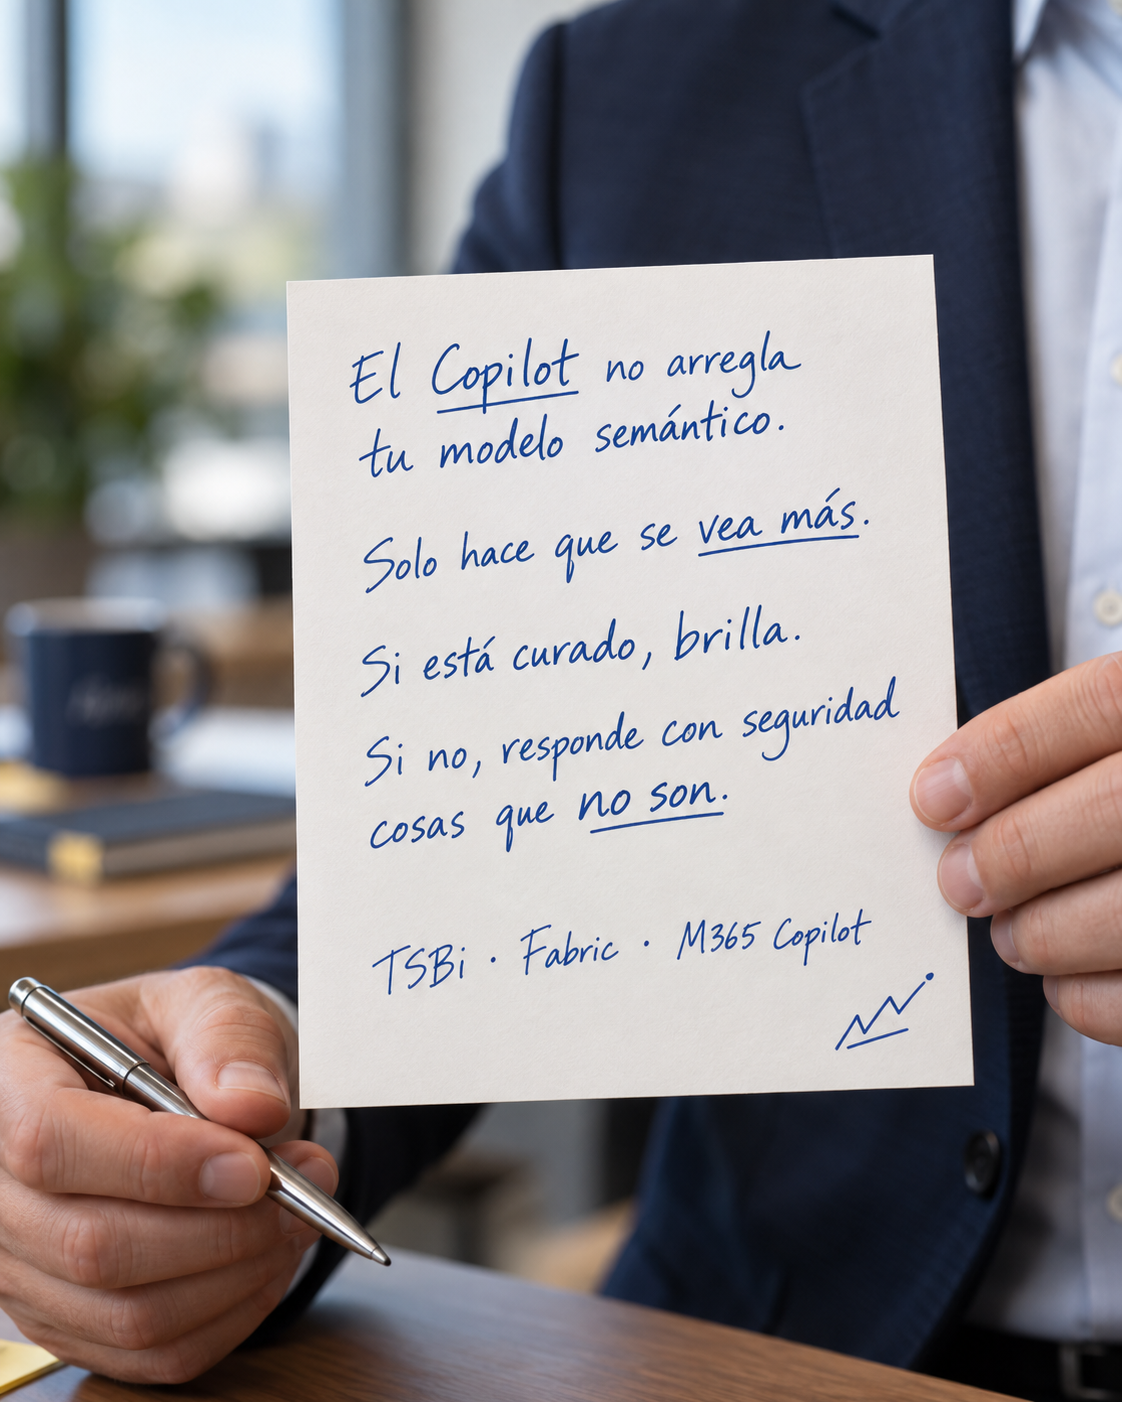 El Copilot no arregla
tu modelo semántico.
Solo hace que se vea más.
Si está curado, brilla.
Si no, responde con seguridad
cosas que no son.
TSBi · Fabric · M365 Copilot